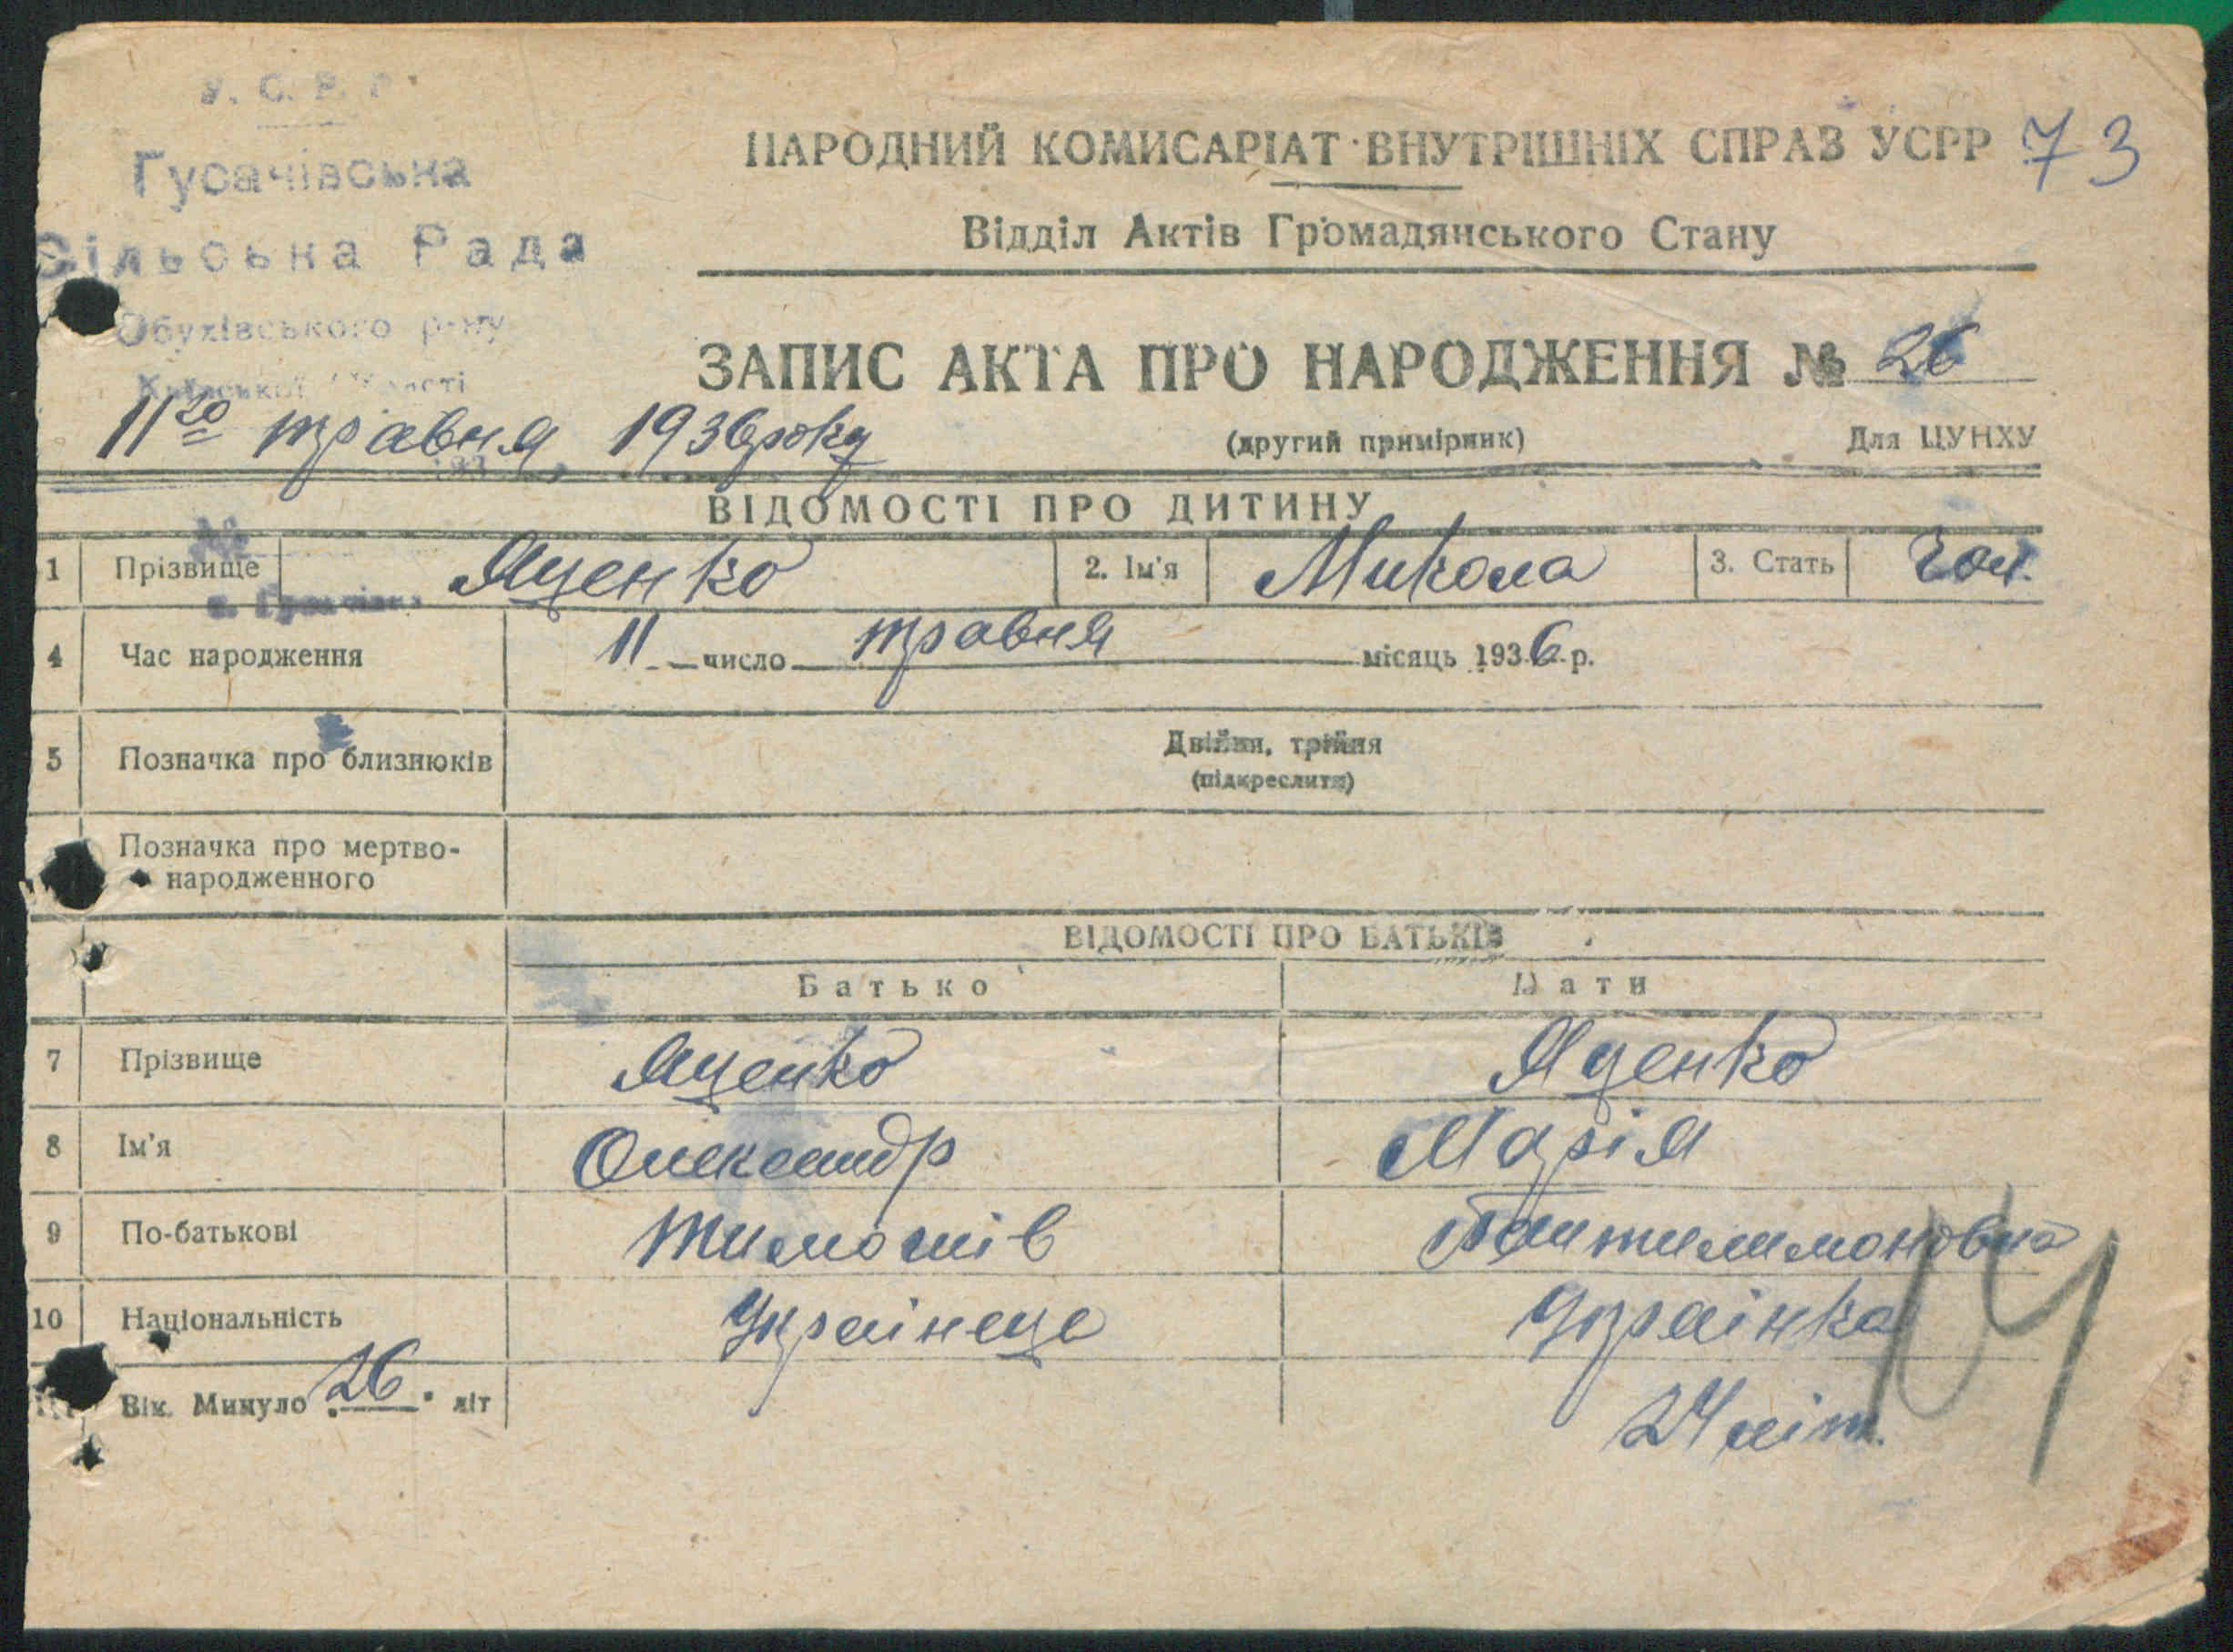 У. С. Р. Р.
Гусачівська
Сільська Рада
Обухівського р-ну
Київської області
НАРОДНИЙ КОМИСАРІАТ ВНУТРІШНІХ СПРАВ УСРР 73
Відділ Актів Громадянського Стану
ЗАПИС АКТА ПРО НАРОДЖЕННЯ № 26
11го травня 1936 року
(другий примірник) Для ЦУНХУ
ВІДОМОСТІ ПРО ДИТИНУ
№
1 Прізвище Яценко 2. Ім'я Микола 3. Стать Чол.
4 Час народження 11 число травня місяць 1936 р.
5 Позначка про близнюків Двійня, трійня
(підкреслити)
Позначка про мертво-
народженного
ВІДОМОСТІ ПРО БАТЬКІВ
Батько Мати
7 Прізвище Яценко Яценко
8 Ім'я Олександр Марія
9 По-батькові Тимошів Пантилимоновна
10 Національність Українеце Українка
Вік. Минуло 26 літ 24 літ.